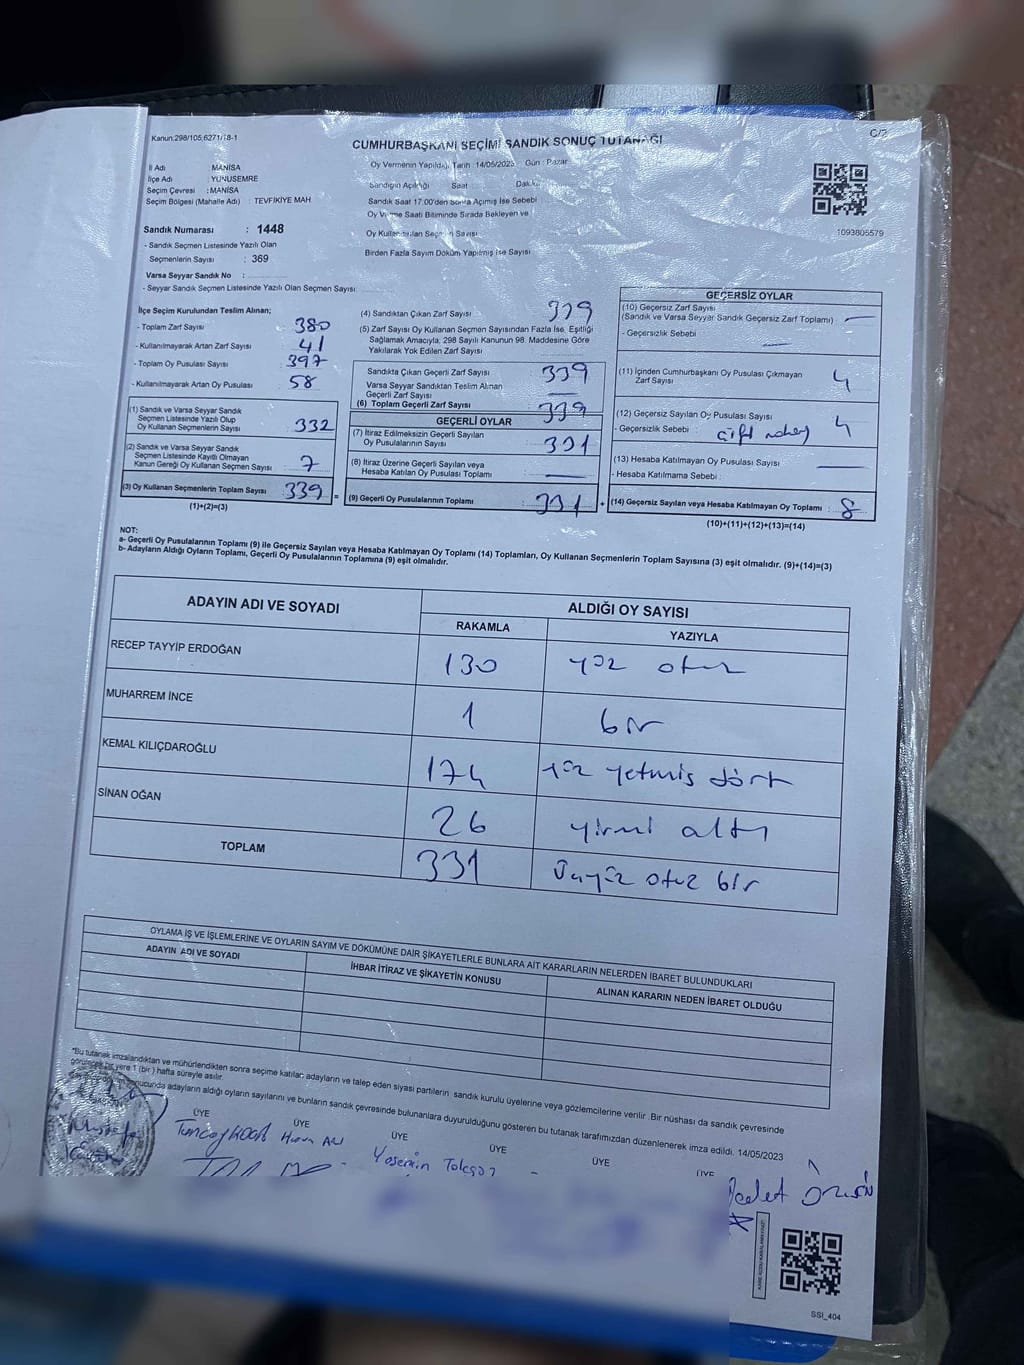 Kanun.298/105,6271/18-1
C/2
CUMHURBAŞKANI SEÇİMİ SANDIK SONUÇ TUTANAĞI
Oy Vermenin Yapıldığı Tarih : 14/05/2023 Gün : Pazar
İl Adı : MANİSA
İlçe Adı : YUNUSEMRE
Seçim Çevresi : MANİSA
Seçim Bölgesi (Mahalle Adı) : TEVFİKİYE MAH
Sandığın Açıldığı Saat Dakika
Sandık Saat 17.00'den Sonra Açılmış İse Sebebi
Oy Verme Saati Bitiminde Sırada Bekleyen ve
Oy Kullandırılan Seçmen Sayısı
Birden Fazla Sayım Döküm Yapılmış İse Sayısı
1093805579
Sandık Numarası : 1448
- Sandık Seçmen Listesinde Yazılı Olan
Seçmenlerin Sayısı : 369
Varsa Seyyar Sandık No :
- Seyyar Sandık Seçmen Listesinde Yazılı Olan Seçmen Sayısı:
İlçe Seçim Kurulundan Teslim Alınan;
- Toplam Zarf Sayısı 380
- Kullanılmayarak Artan Zarf Sayısı 41
- Toplam Oy Pusulası Sayısı 397
- Kullanılmayarak Artan Oy Pusulası 58
(1) Sandık ve Varsa Seyyar Sandık
Seçmen Listesinde Yazılı Olup
Oy Kullanan Seçmenlerin Sayısı 332
(2) Sandık ve Varsa Seyyar Sandık
Seçmen Listesinde Kayıtlı Olmayan
Kanun Gereği Oy Kullanan Seçmen Sayısı 7
(3) Oy Kullanan Seçmenlerin Toplam Sayısı 339 =
(1)+(2)=(3)
(4) Sandıktan Çıkan Zarf Sayısı 339
(5) Zarf Sayısı Oy Kullanan Seçmen Sayısından Fazla İse, Eşitliği
Sağlamak Amacıyla, 298 Sayılı Kanunun 98. Maddesine Göre
Yakılarak Yok Edilen Zarf Sayısı
Sandıkta Çıkan Geçerli Zarf Sayısı 339
Varsa Seyyar Sandıktan Teslim Alınan
Geçerli Zarf Sayısı
(6) Toplam Geçerli Zarf Sayısı 339
GEÇERLİ OYLAR
(7) İtiraz Edilmeksizin Geçerli Sayılan
Oy Pusulalarının Sayısı 331
(8) İtiraz Üzerine Geçerli Sayılan veya
Hesaba Katılan Oy Pusulası Toplamı
(9) Geçerli Oy Pusulalarının Toplamı 331 +
GEÇERSİZ OYLAR
(10) Geçersiz Zarf Sayısı
(Sandık ve Varsa Seyyar Sandık Geçersiz Zarf Toplamı)
- Geçersizlik Sebebi :
(11) İçinden Cumhurbaşkanı Oy Pusulası Çıkmayan
Zarf Sayısı 4
(12) Geçersiz Sayılan Oy Pusulası Sayısı 4
- Geçersizlik Sebebi : çift
(13) Hesaba Katılmayan Oy Pusulası Sayısı
- Hesaba Katılmama Sebebi :
(14) Geçersiz Sayılan veya Hesaba Katılmayan Oy Toplamı : 8
(10)+(11)+(12)+(13)=(14)
NOT:
a- Geçerli Oy Pusulalarının Toplamı (9) ile Geçersiz Sayılan veya Hesaba Katılmayan Oy Toplamı (14) Toplamları, Oy Kullanan Seçmenlerin Toplam Sayısına (3) eşit olmalıdır. (9)+(14)=(3)
b- Adayların Aldığı Oyların Toplamı, Geçerli Oy Pusulalarının Toplamına (9) eşit olmalıdır.
ADAYIN ADI VE SOYADI ALDIĞI OY SAYISI
RAKAMLA YAZIYLA
RECEP TAYYİP ERDOĞAN 130 yüz otuz
MUHARREM İNCE 1 bir
KEMAL KILIÇDAROĞLU 174 yüz yetmiş dört
SİNAN OĞAN 26 yirmi altı
TOPLAM 331 Üçyüz otuz bir
OYLAMA İŞ VE İŞLEMLERİNE VE OYLARIN SAYIM VE DÖKÜMÜNE DAİR ŞİKAYETLERLE BUNLARA AİT KARARLARIN NELERDEN İBARET BULUNDUKLARI
ADAYIN ADI VE SOYADI İHBAR İTİRAZ VE ŞİKAYETİN KONUSU ALINAN KARARIN NEDEN İBARET OLDUĞU
*Bu tutanak imzalandıktan ve mühürlendikten sonra seçime katılan adayların ve talep eden siyasi partilerin sandık kurulu üyelerine veya gözlemcilerine verilir. Bir nüshası da sandık çevresinde
görülecek bir yere 1 (bir) hafta süreyle asılır.
sonucunda adayların aldığı oyların sayılarını ve bunların sandık çevresinde bulunanlara duyurulduğunu gösteren bu tutanak tarafımızdan düzenlenerek imza edildi. 14/05/2023
ÜYE ÜYE ÜYE ÜYE ÜYE ÜYE
Yasemin
SSİ_404